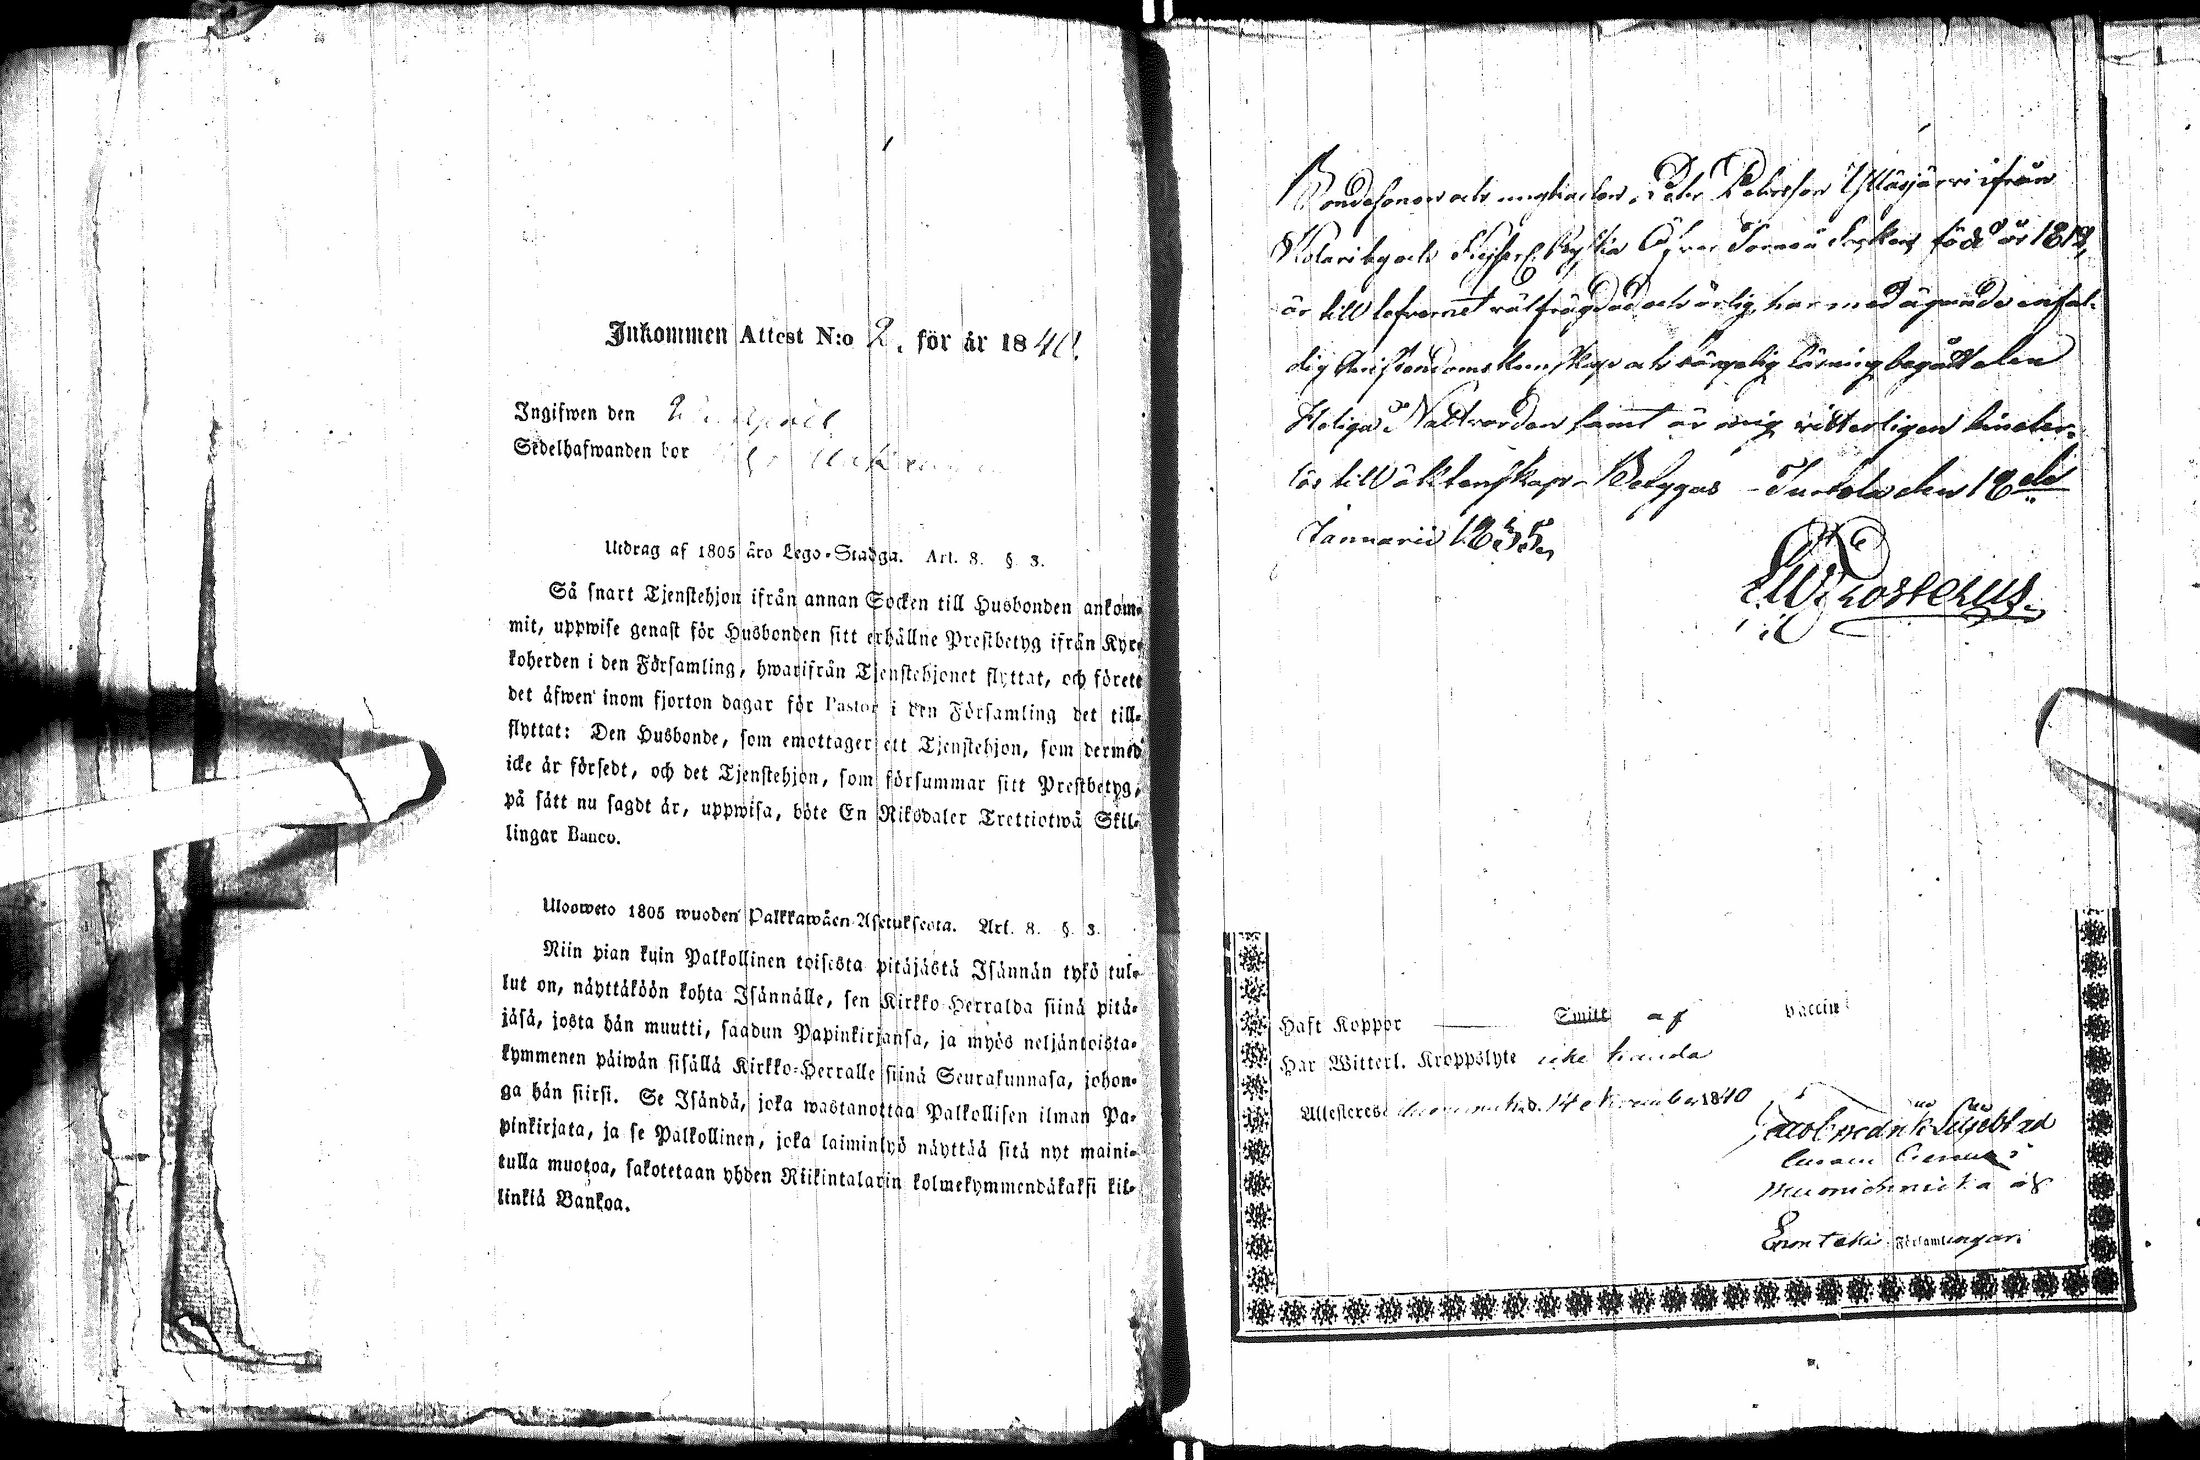 Inkommen Attest N:o 2. för år 1840.
Ingifwen den April
Sedelhafwanden bor
Utdrag af 1805 åro Lego-Stadga. Art. 8. § 3.
Så snart Tjenstehjon ifrån annan Socken till Husbonden ankom-
mit, uppwise genast för Husbonden sitt erhållne Prestbetyg ifrån Kyr-
koherden i den Församling, hwarifrån Tjenstehjonet flyttat, och förete
det äfwen inom fjorton dagar för Pastor i den Församling det till-
flyttat: Den Husbonde, som emottager ett Tjenstehjon, som dermed
icke är försedt, och det Tjenstehjon, som försummar sitt Prestbetyg,
på sätt nu sagdt är, uppwisa, böte En Riksdaler Trettiotwå Skil-
lingar Banco.
Ulosweto 1805 wuoden Palkkawäen Asetuksesta. Art. 8. §. 3.
Niin pian kuin Palkollinen toisesta pitäjästä Isännän tykö tul-
lut on, näyttäköön kohta Isännälle, sen Kirkko Herralda siinä pitä-
jäsä, josta hän muutti, saadun Papinkirjansa, ja myös neljäntoista-
kymmenen päiwän sisällä Kirkko-Herralle siinä Seurakunnasa, johon-
ga hän siirsi. Se Isändä, joka wastanottaa Palkollisen ilman Pa-
pinkirjata, ja se Palkollinen, joka laiminlyö näyttää sitä nyt maini-
tulla muotoa, sakotetaan yhden Riikintalarin kolmekymmendäkaksi kil-
linkiä Bankoa.
Bondesonen och ungkarlen Petter Pehrsson Ylläsjärvi ifrån
Kolari by och Öfver Torneå Sockens född år 1818,
är till lefvernet välfrägdad och ärlig, har med ägande enfal-
dig Christendoms kunskap och börgelig läsning begått den
Heliga Nattvarden samt är mig vitterligen hinder-
lös till äktenskap. Betygas Turtola den 18de
Januarii 1835.
Haft Koppor Smitt af vaccin
Har Witterl. Kroppslyte icke kända
Attesteres. d. 14 1840
Jacob Fredrik Liljeblad
Muonioniska och
Enontekis Församlingar.